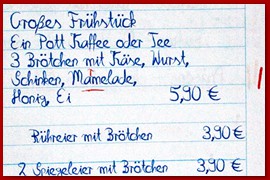 Großes Frühstück
Ein Pott Kaffee oder Tee
3 Brötchen mit Käse, Wurst,
Schinken, Mamelade,
Honig, Ei 5,90 €
Rühreier mit Brötchen 3,90 €
2 Spiegeleier mit Brötchen 3,90 €